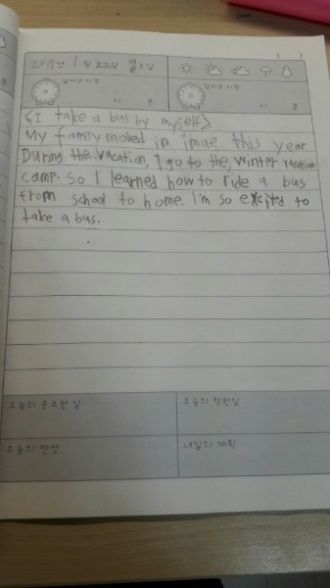 2017년 1월 22일 월요일
일어난 시각
시 분
시 분
<I take a bus by myself>
My family moved in imae this year
During the vacation, I go to the winter vacation
camp. So I learned how to ride a bus
from school to home. I'm so excited to
take a bus.
오늘의 중요한 일
오늘의 착한일
오늘의 반성
내일의 계획